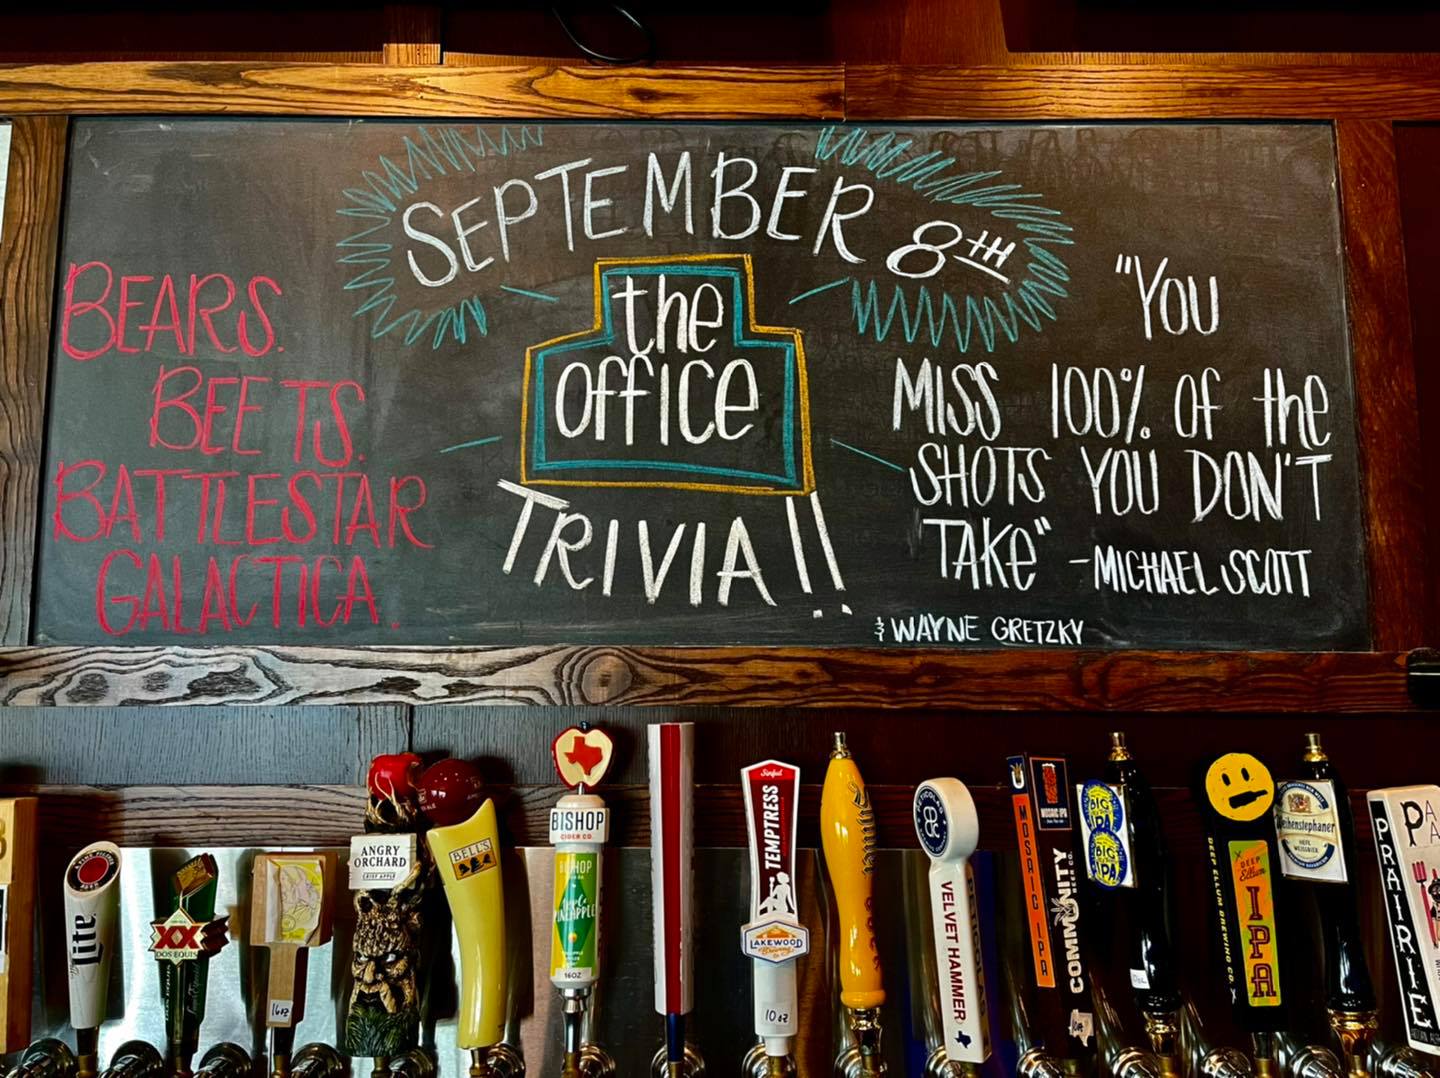 SEPTEMBER 8TH
the
office
TRIVIA!!
BEARS.
BEETS.
BATTLESTAR
GALACTICA.
"YOU
MISS 100% OF the
SHOTS YOU DON'T
TAKE" -MICHAEL SCOTT
& WAYNE GRETZKY
Lite
XX
DOS EQUIS
16oz
ANGRY
ORCHARD
CRISP APPLE
BELL'S
BISHOP
CIDER CO.
BISHOP
PINEAPPLE
16OZ
Sinful
TEMPTRESS
LAKEWOOD
Brewing
10 oz
Shiner
VELVET HAMMER
MOSAIC IPA
MOSAIC IPA
COMMUNITY
BEER CO.
BIG
IPA
BIG
IPA
DEEP ELLUM BREWING CO.
DEEP
Ellum
IPA
Weihenstephaner
HEFE
WEISSBIER
PRAIRIE